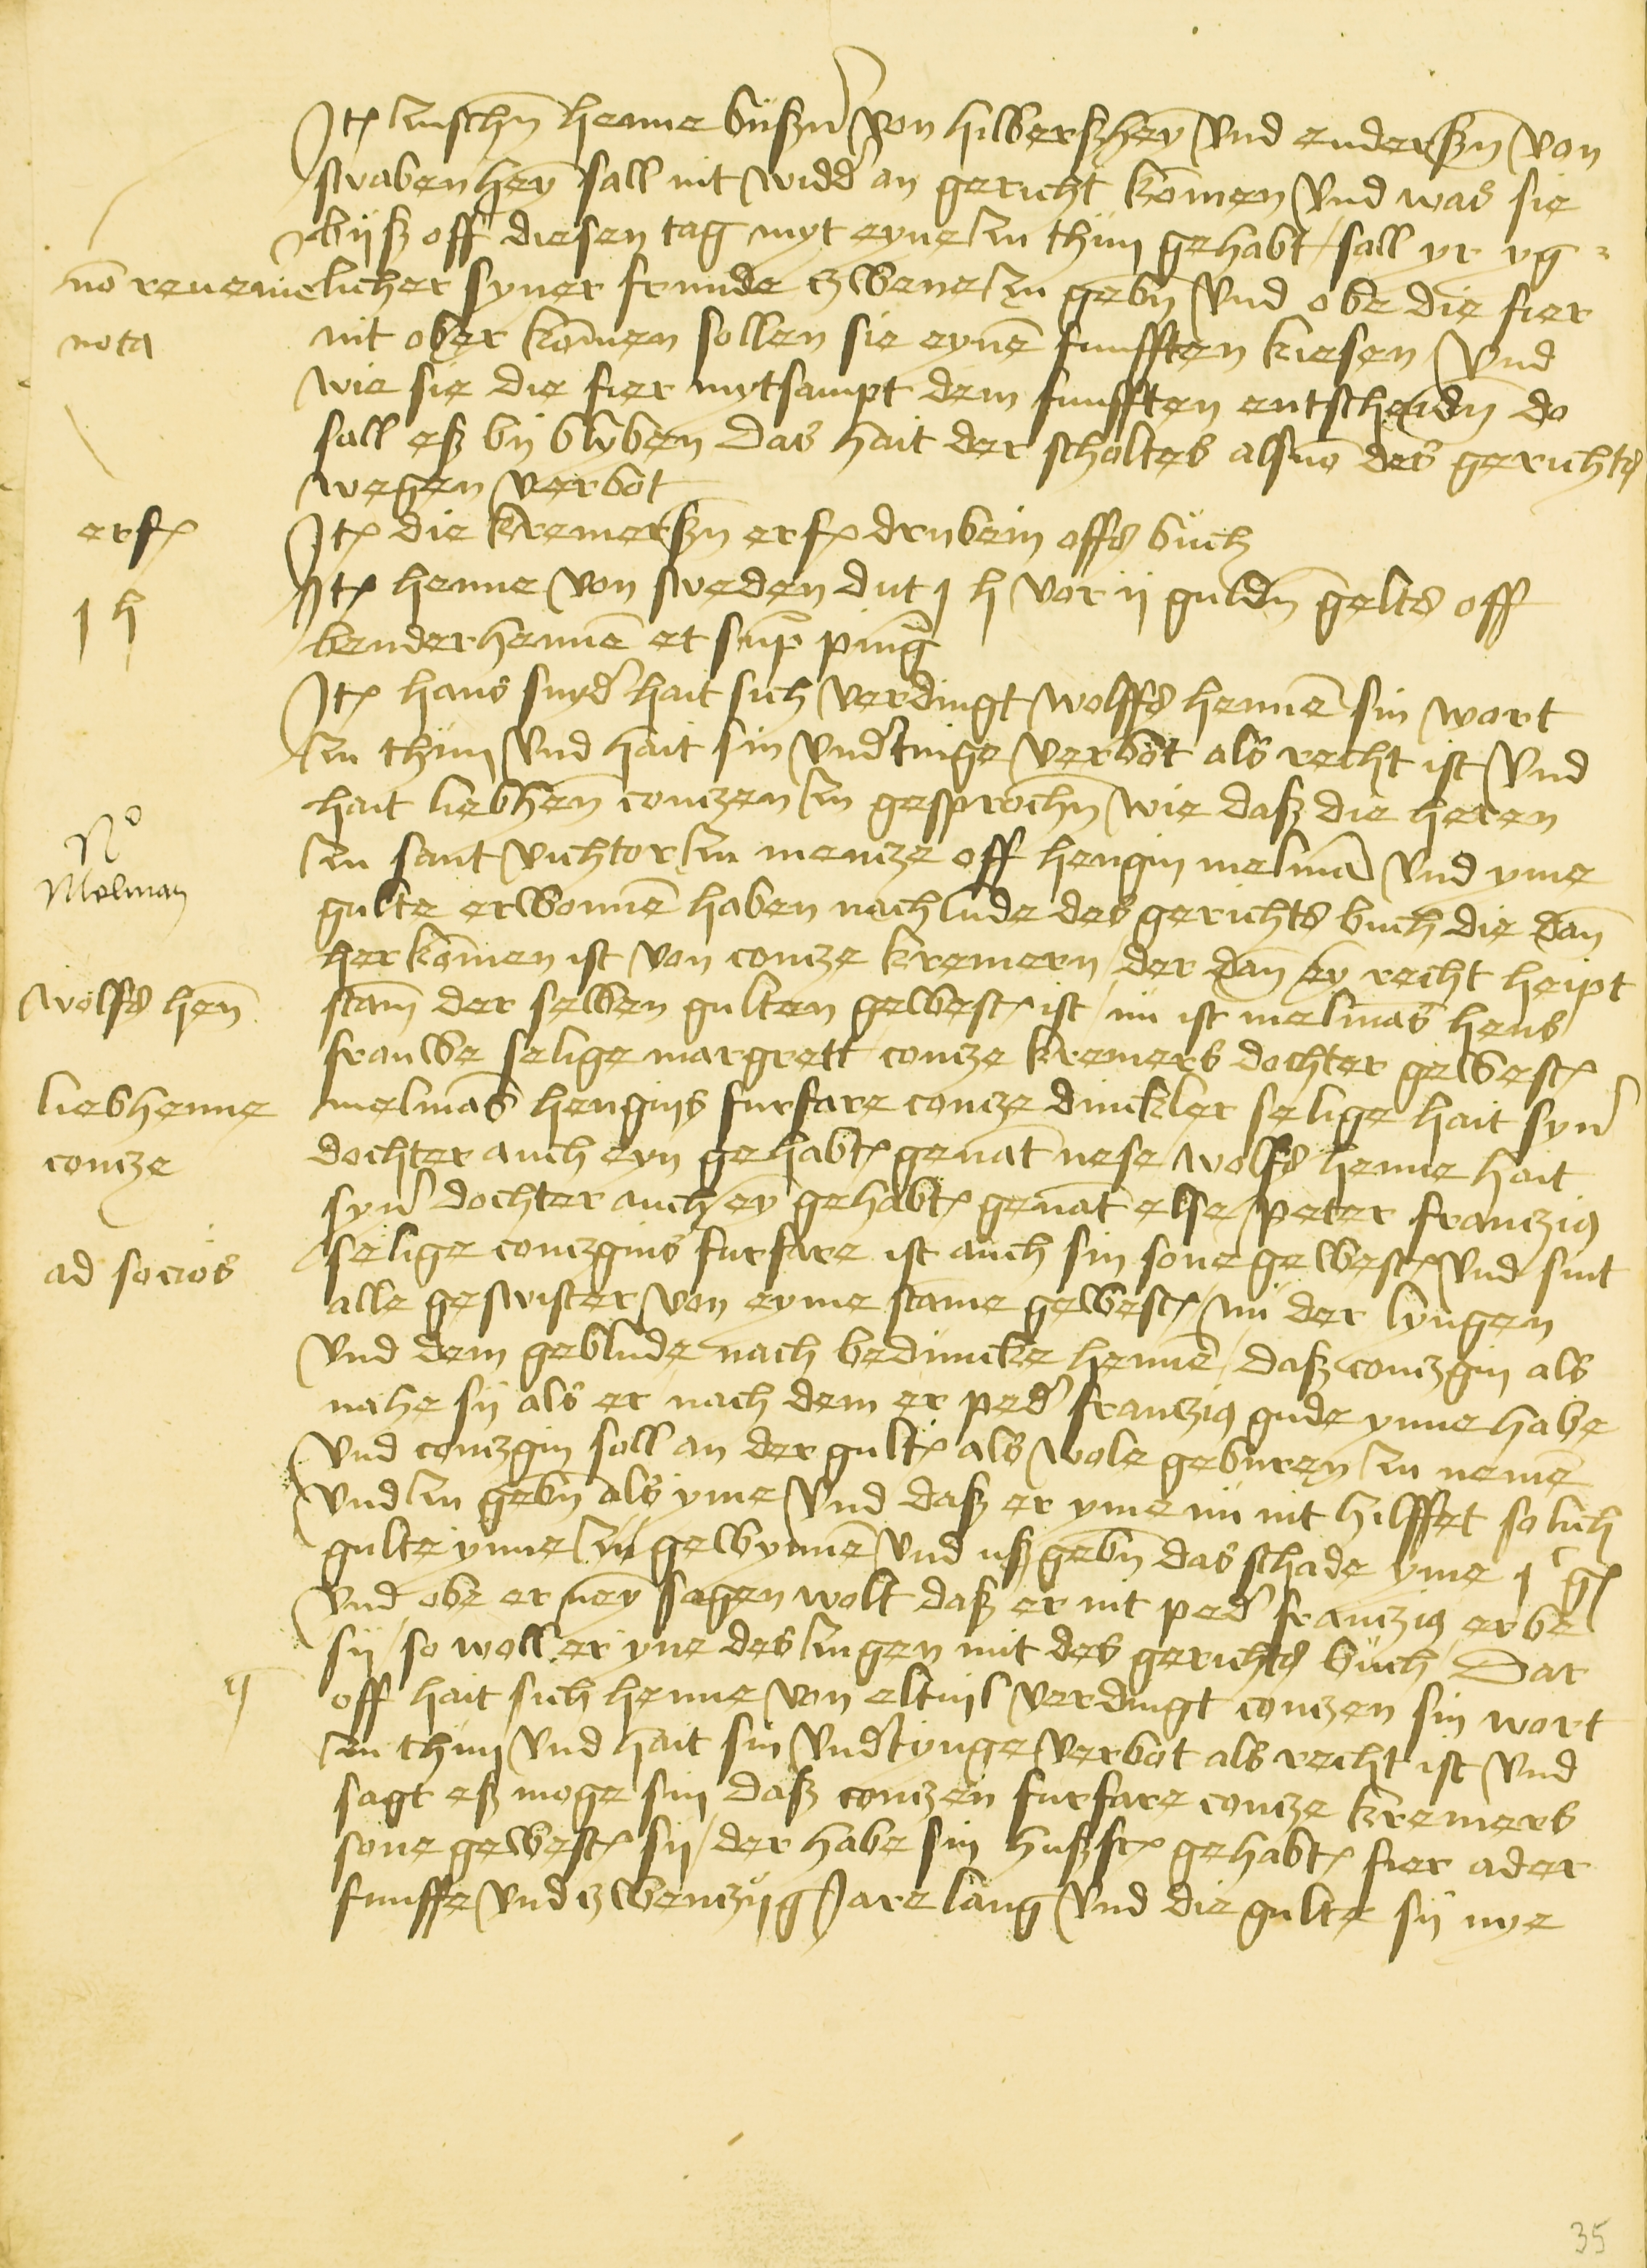 Jt(em) zusschn henne büßer von hilberßhey und enderßn von
swabenhey sall nit widd(er) an gericht komen und was sie
bijß off diesen tag myt eyne zu thun gehabt / sall yr yg=
licher syner frunde zwene zu gebn und obe die fier
no(n) reueme
nit ober komen sollen sie eyne funfften kiesen und
nota
wie sie die fier mytsampt dem funfften entscheidn do
sall eß bij blyben Das hait der scholtes als vo(n) des gerichts
wegen verbot
erf(olgt)
Jt(em) die kremerßn erf(olgt) drubein offs buch
1 h
Jt(em) henne von sweden dut 1 h vor ij guldn gelts off
benderhenne et sup(ra) ping(nora)
Jt(em) hans snyd(er) hait sich verdingt wolffs henne sin wort
zu thun und hait sin und(er)tinge verbot als recht ist und
hait liebhen conczen zu gesprochn wie daß die heren
No
zu sant vichtor zu mencze off hengin melma(n) und yme
Melman
gulte erwonne haben nach lude des gerichts buch die dan
her komen ist von concze kremern / der dan ey recht heipt
wolfs hen
stam der selben gulten gewest ist / nu ist melmas hens
frauwe selige margrett concze kremers dochter gewest
liebhenne
melmas hengins furfare concze dinckler selige hait syn(er)
concze
dochter auch eyn gehabt genat nese wolffs henne hait
syn(er) dochter auch ey gehabt genat else / peter franczig
ad socios
selige conczgins furfare ist auch sin sone gewest und sint
alle geswister von eyme stame gewest / nu der lyngen
und dem geblude nach beduncke henne / daß conczgin als
nahe sij als er nach dem er ped(er) franczig gude ynne habe
und conczgin soll an der gult als wole geburen zu neme
und zu gebn als yme und daß er yme nu nit hilffet solich
gulte ynne zu gewynne und uß gebn das schade yme 1 g
und obe er ney sagen wolt daß er nit ped(er) franczig erbe
sij / so woll er yne des zugen mit des gerichts buch / Dar
off hait sich henne von eltuil verdingt conczen sin wort
zu thun und hait sin und(er)tynge verbot als recht ist und
sagt eß moge sin daß conczen furfare concze kremers
sone gewest sij / der habe sin hußf(rau) gehabt fier ader
funffe und zwenczijg Jare lang und die gulte sij nye
35